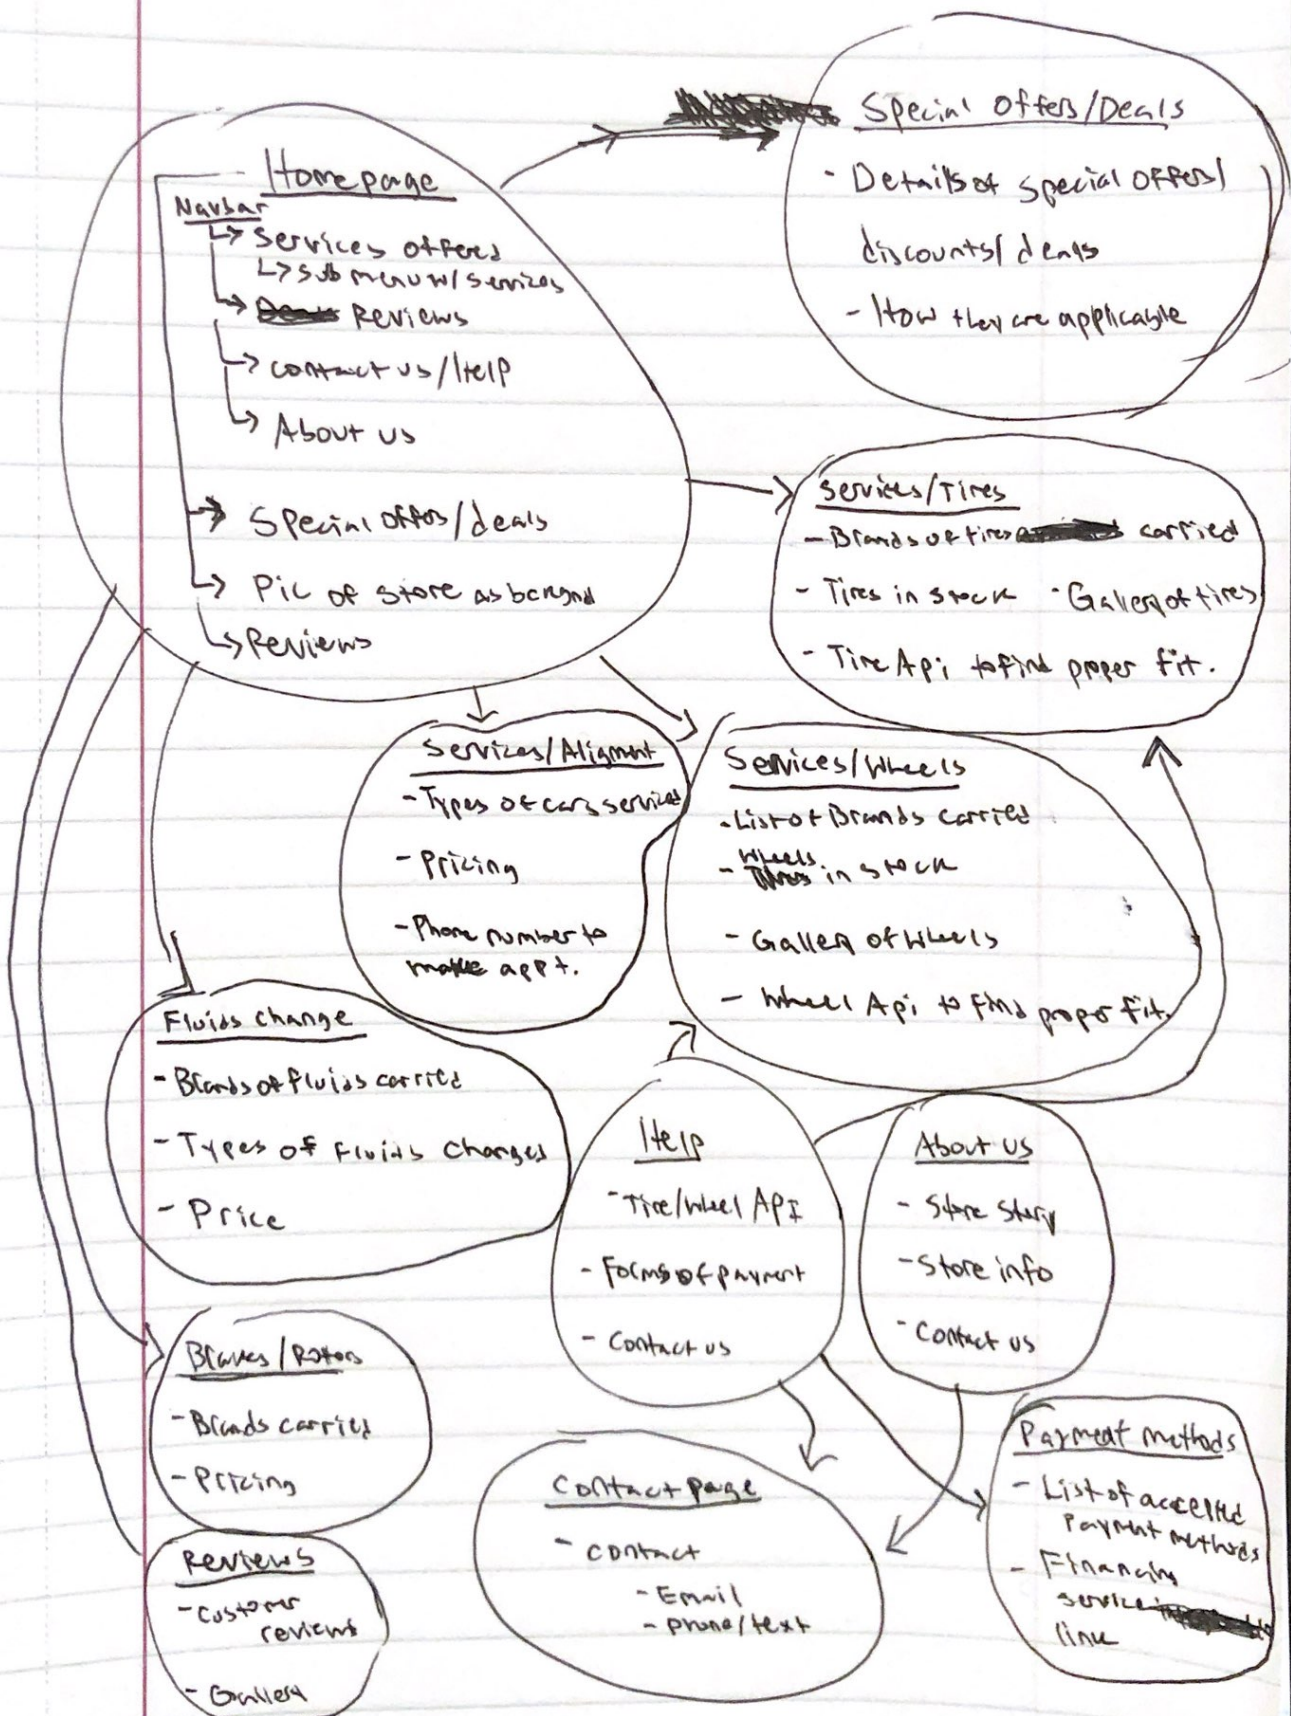 Homepage
Navbar
Services offered
Sub menu w/ services
Reviews
contact us/Help
About us
Special offers/deals
Pic of store as
Reviews
Special Offers/Deals
- Details of special offers/
discounts/deals
- How they are applicable
Services/Tires
- Brands of tires carried
- Tires in stock - Gallery of tires
- Tire Api to find proper fit.
Services/Aligment
- Types of cars serviced
- Pricing
- Phone number to
make appt.
Services/Wheels
- List of Brands carried
- Wheels in stock
- Gallery of wheels
- Wheel Api to find proper fit.
Fluids change
- Brands of fluids carried
- Types of fluids changes
- Price
Help
- Tire/wheel API
- Forms of payment
- Contact us
About us
- Store Story
- Store info
- Contact us
Brakes/Rotors
- Brands carried
- Pricing
Reviews
- Customer
reviews
- Gallery
Contact page
- contact
- Email
- phone/text
Payment methods
- List of accepted
Payment methods
- Financing
service
link